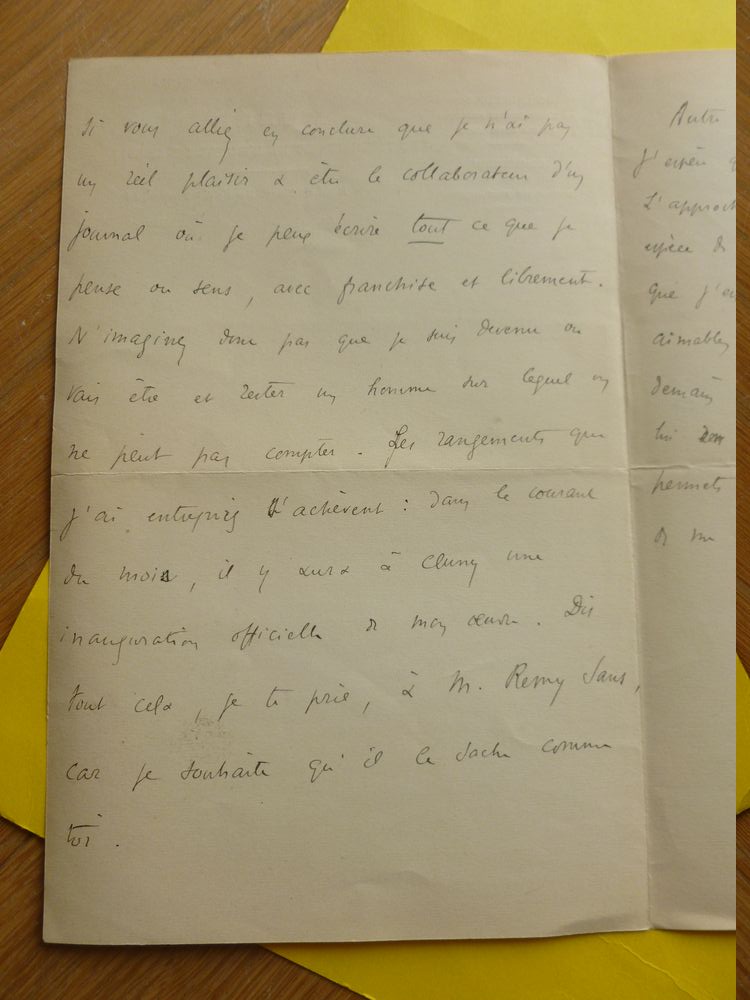 Si vous alliez en conclure que je n'ai pas
un réel plaisir à être le collaborateur d'un
journal où je peux écrire tout ce que je
pense ou sens, avec franchise et librement.
N'imaginez donc pas que je suis devenu ou
vais être et rester un homme sur lequel on
ne peut pas compter. Les rangements que
j'ai entrepris s'achèvent : dans le courant
du mois, il y aura à Cluny une
inauguration officielle de mon œuvre. Dis
tout cela, je te prie, à M. Remy Sans,
car je souhaite qu'il le sache comme
toi.
Autre
J'espère
L'approch
espèce de
que j'ai
aimables
demain
lui
permets
de me